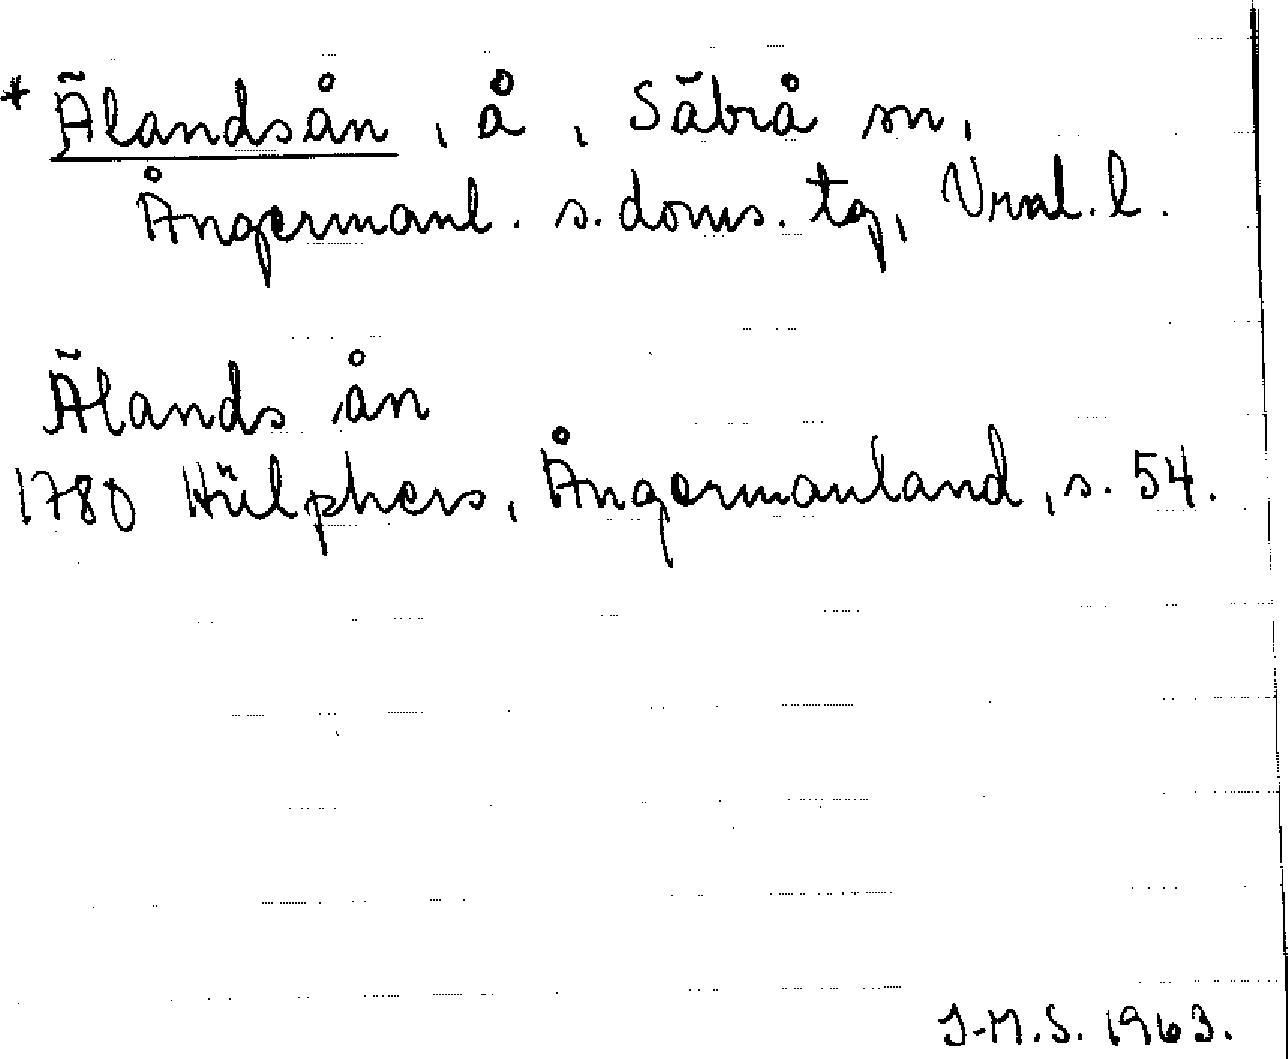 * Älandsån, å, Säbrå sn,
Ångermanl. s. doms. tg, Vnl. l.
Älands ån
1780 Hülphers, Ångermanland, s. 54.
J-M.S. 1963.